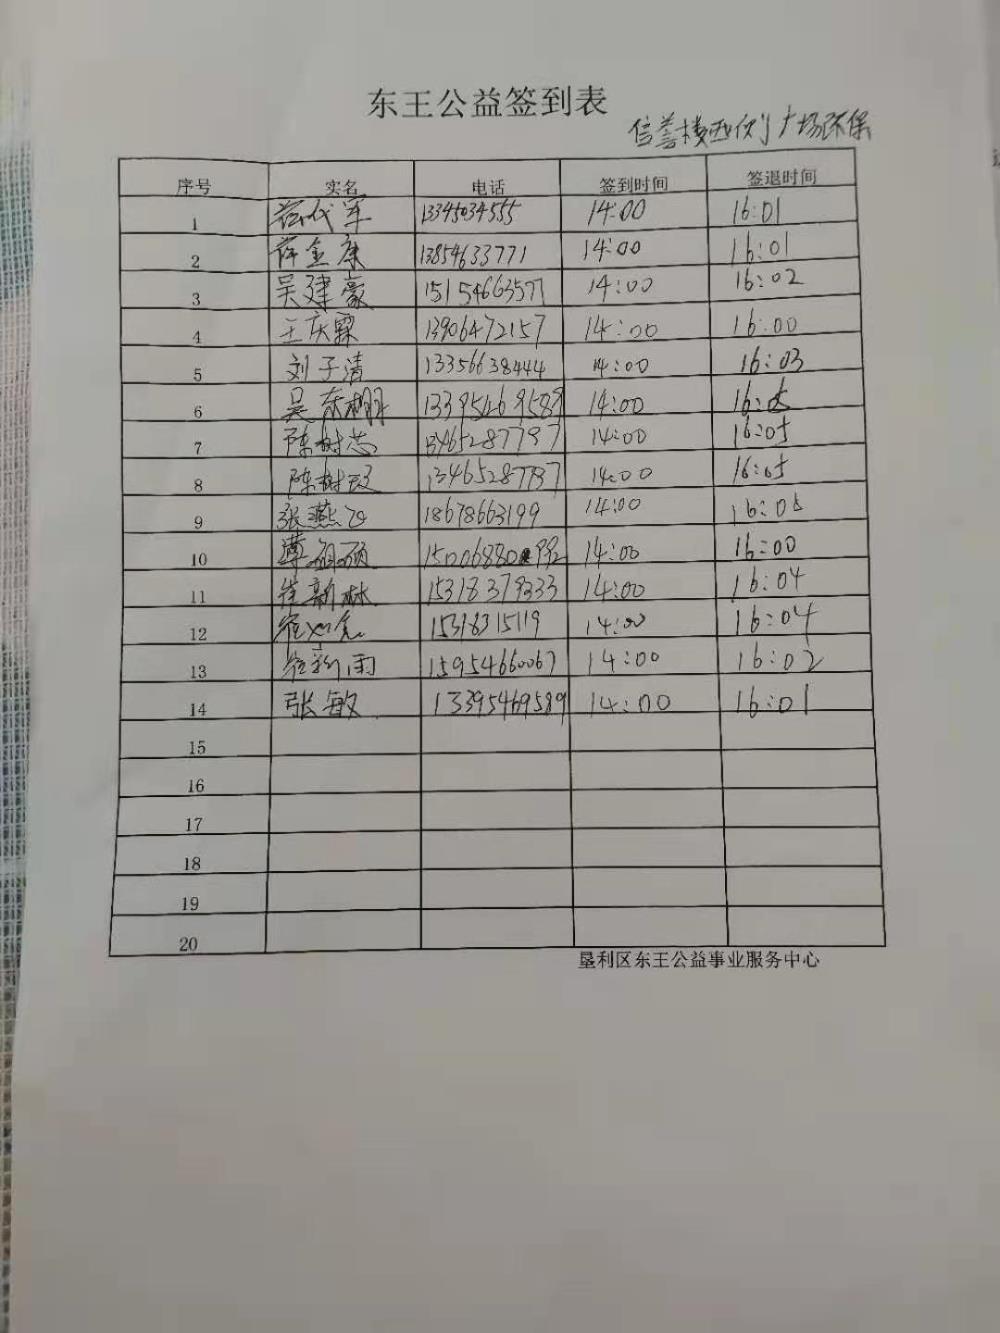 东王公益签到表
信誉楼西侧广场环保
序号 实名 电话 签到时间 签退时间
1 代军 13345034555 14:00 16:01
2 薛金康 13854633771 14:00 16:01
3 吴建豪 15154663577 14:00 16:02
4 王庆霖 13906472157 14:00 16:00
5 刘子清 13356638444 14:00 16:03
6 吴东 14:00 16:05
7 陈树芯 13465287797 14:00 16:05
8 陈树 13465287797 14:00 16:05
9 张燕 18678663199 14:00
10 14:00 16:00
11 崔新林 15318379333 14:00 16:04
12 15318315119 14:00 16:04
13 崔新雨 15954660067 14:00 16:02
14 张敏 13395469589 14:00 16:01
15
16
17
18
19
20
垦利区东王公益事业服务中心